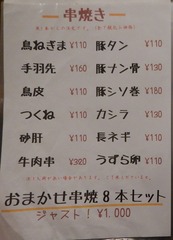 串焼き
鳥ねぎま ¥110 豚タン ¥110
手羽先 ¥160 豚ナン骨 ¥130
鳥皮 ¥110 豚シソ巻 ¥180
つくね ¥110 カシラ ¥130
砂肝 ¥110 長ネギ ¥110
牛肉串 ¥320 うずら卵 ¥110
おまかせ串焼8本セット
ジャスト！ ¥1.000